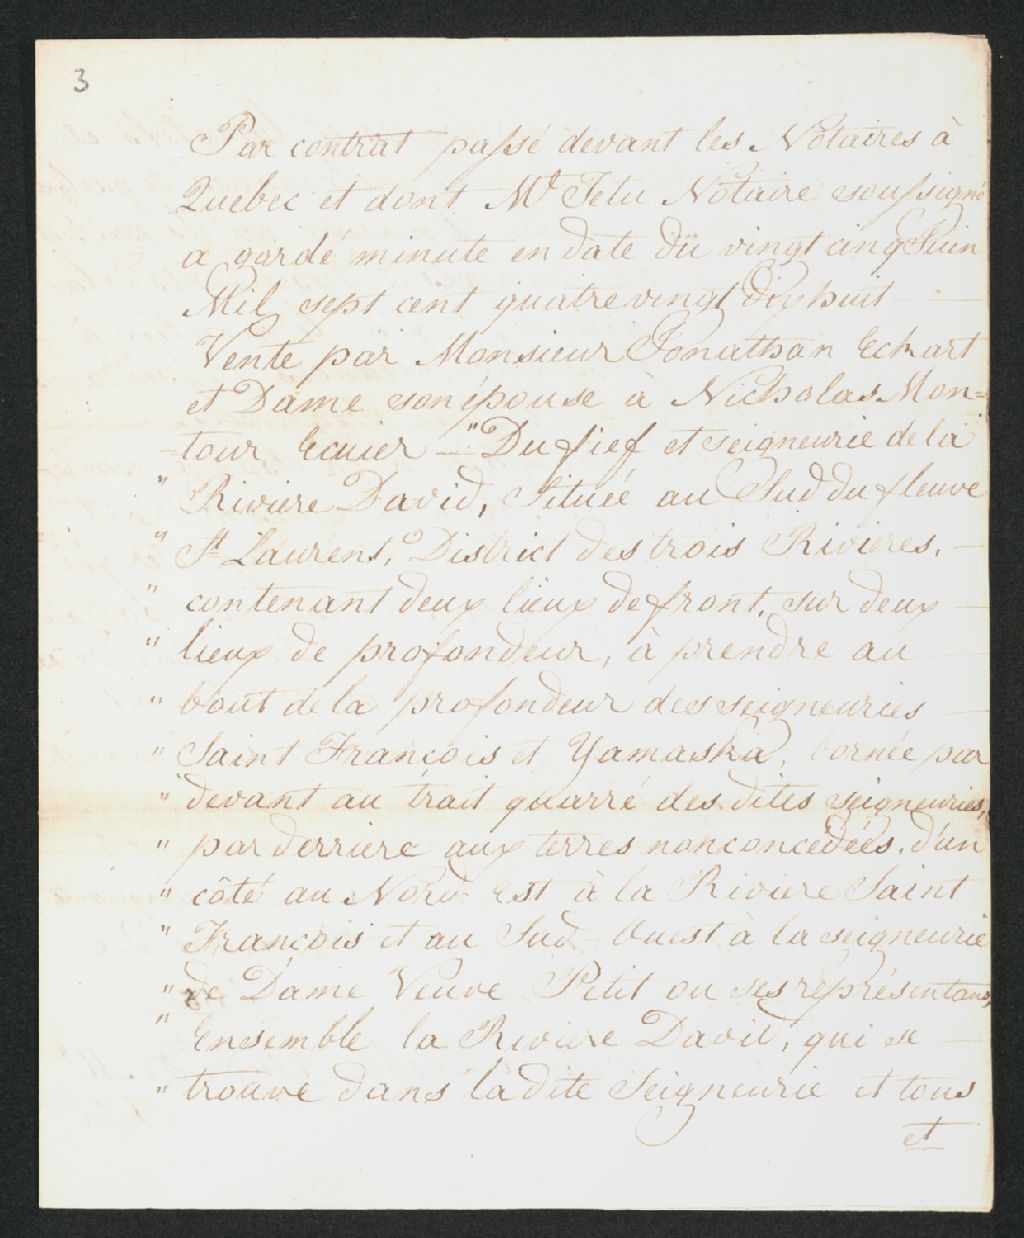 3
Par contrat passé devant les Notaires à
Quebec et dont Mr. Tetu Notaire soussigné
a gardé minute en date du vingt cinq Juin
Mil sept cent quatre vingt dix huit
Vente par Monsieur Jonathan Eckart
et Dame son épouse à Nicholas Mon=
=tour Ecuier — "Du fief et seigneurie de la
" Riviere David, Située au Sud du fleuve
" St. Laurent, District des trois Rivieres,
" contenant deux lieux de front, sur deux
" lieux de profondeur, à prendre au
" bout de la profondeur des seigneuries
" Saint François et Yamaska, bornée par
" devant au trait quarré des dites seigneuries,
" par derriere aux terres nonconcedées, d'un
" côté au Nord-Est à la Riviere Saint
" François et au Sud-Ouest à la seigneurie
" de Dame Veuve Petit ou ses représentans,
" Ensemble la Riviere David, qui se
" trouve dans la dite Seigneurie et tous
et